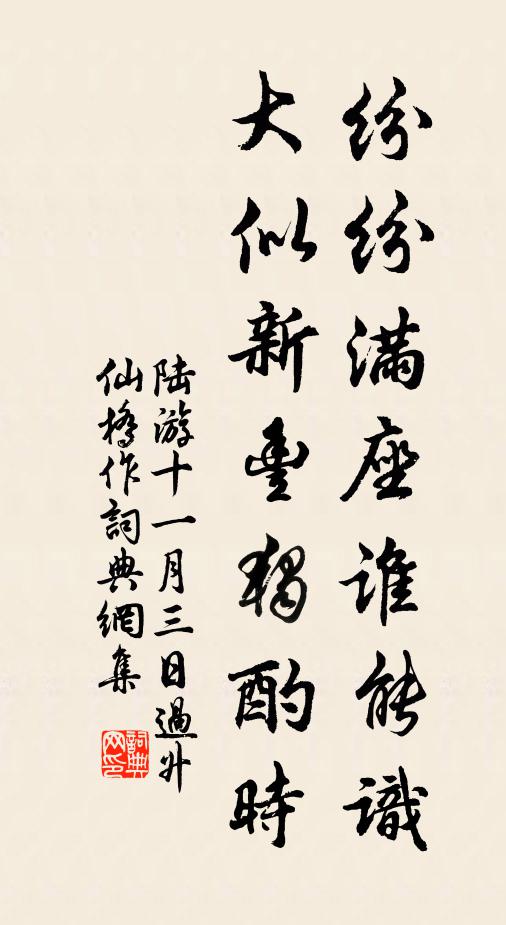 纷纷满座谁能識
大似新豊独酌時
陆游十一月三日過升
仙橋作詞典網集
詞典
网印